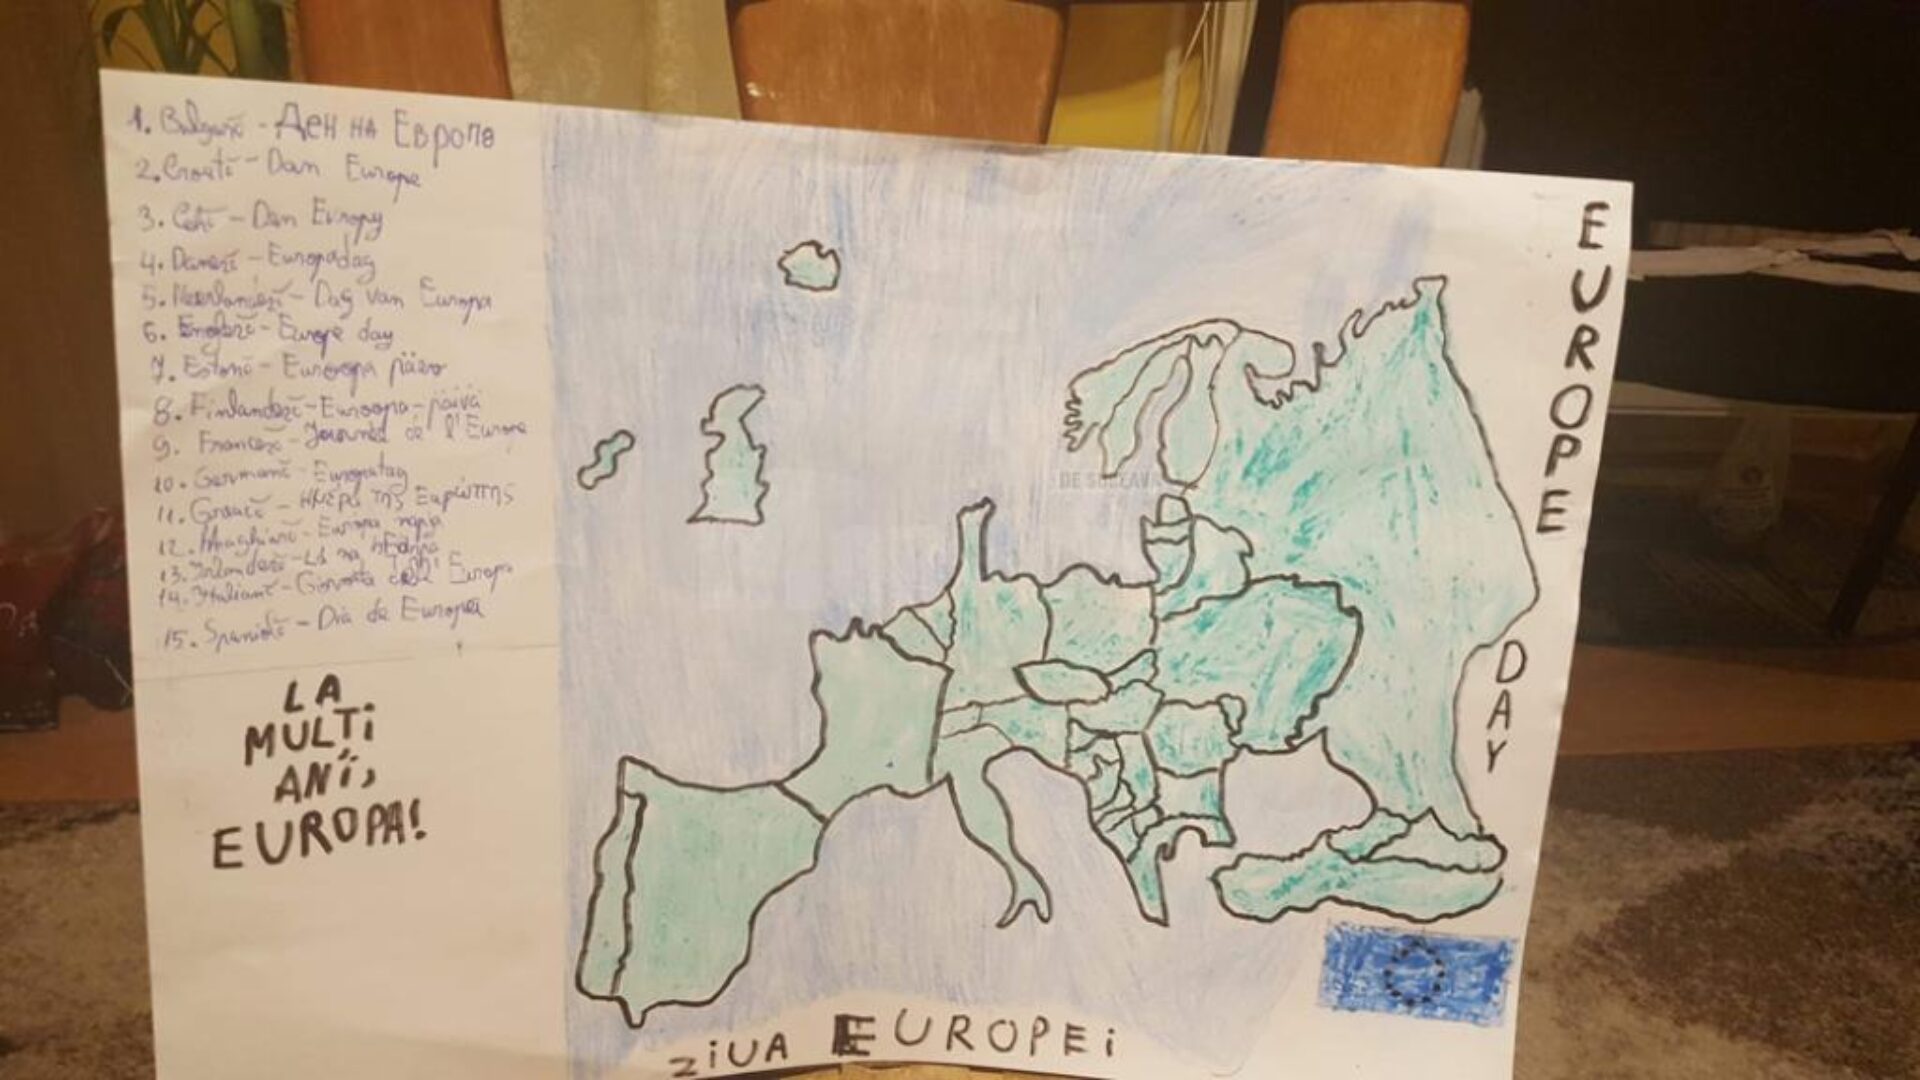 1. Bulgară - Ден на Европа
2. Croată - Dan Europe
3. Cehă - Den Evropy
4. Daneză - Europadag
5. Neerlandeză - Dag van Europa
6. Engleză - Europe day
7. Estonă - Euroopa päev
8. Finlandeză - Euroopa-päivä
9. Franceză - Journée de l'Europe
10. Germană - Europatag
11. Greacă - Ημέρα της Ευρώπης
12. Maghiară - Europa napja
13. Irlandeză - Lá na hEorpa
14. Italiană - Giornata dell' Europa
15. Spaniolă - Dia de Europa
LA
MULTI
ANi,
EUROPA!
EUROPE
DAY
DE SUCEAVA
ZiUA EUROPEi